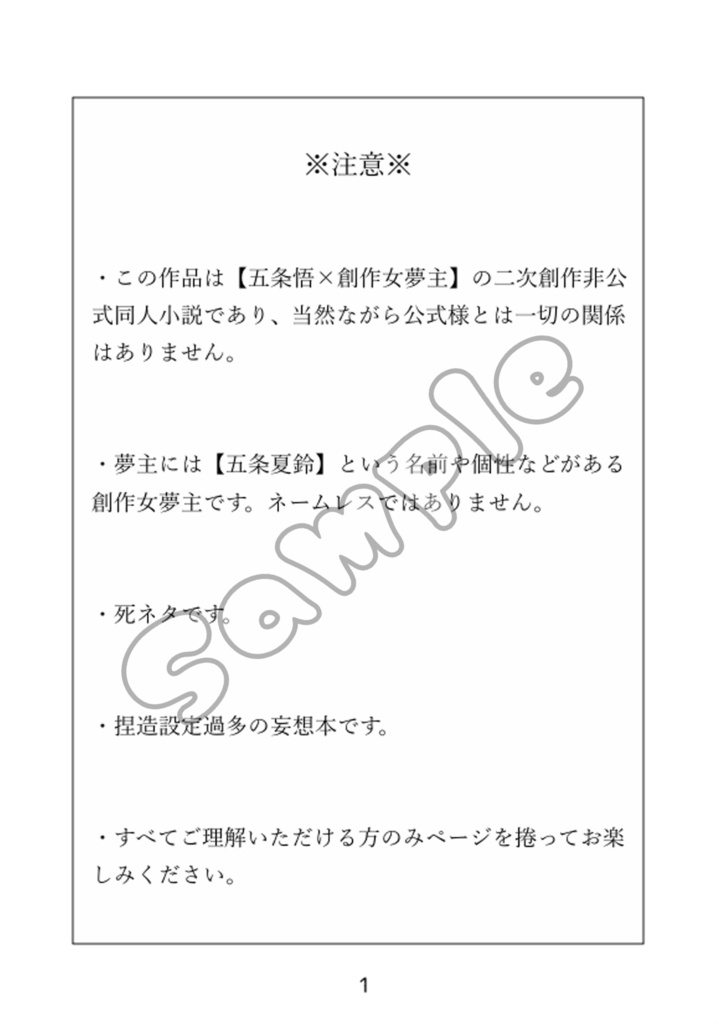 ※注意※
・この作品は【五条悟×創作女夢主】の二次創作非公
式同人小説であり、当然ながら公式様とは一切の関係
はありません。
・夢主には【五条夏鈴】という名前や個性などがある
創作女夢主です。ネームレスではありません。
・死ネタです。
・捏造設定過多の妄想本です。
・すべてご理解いただける方のみページを捲ってお楽
しみください。
Sample
1